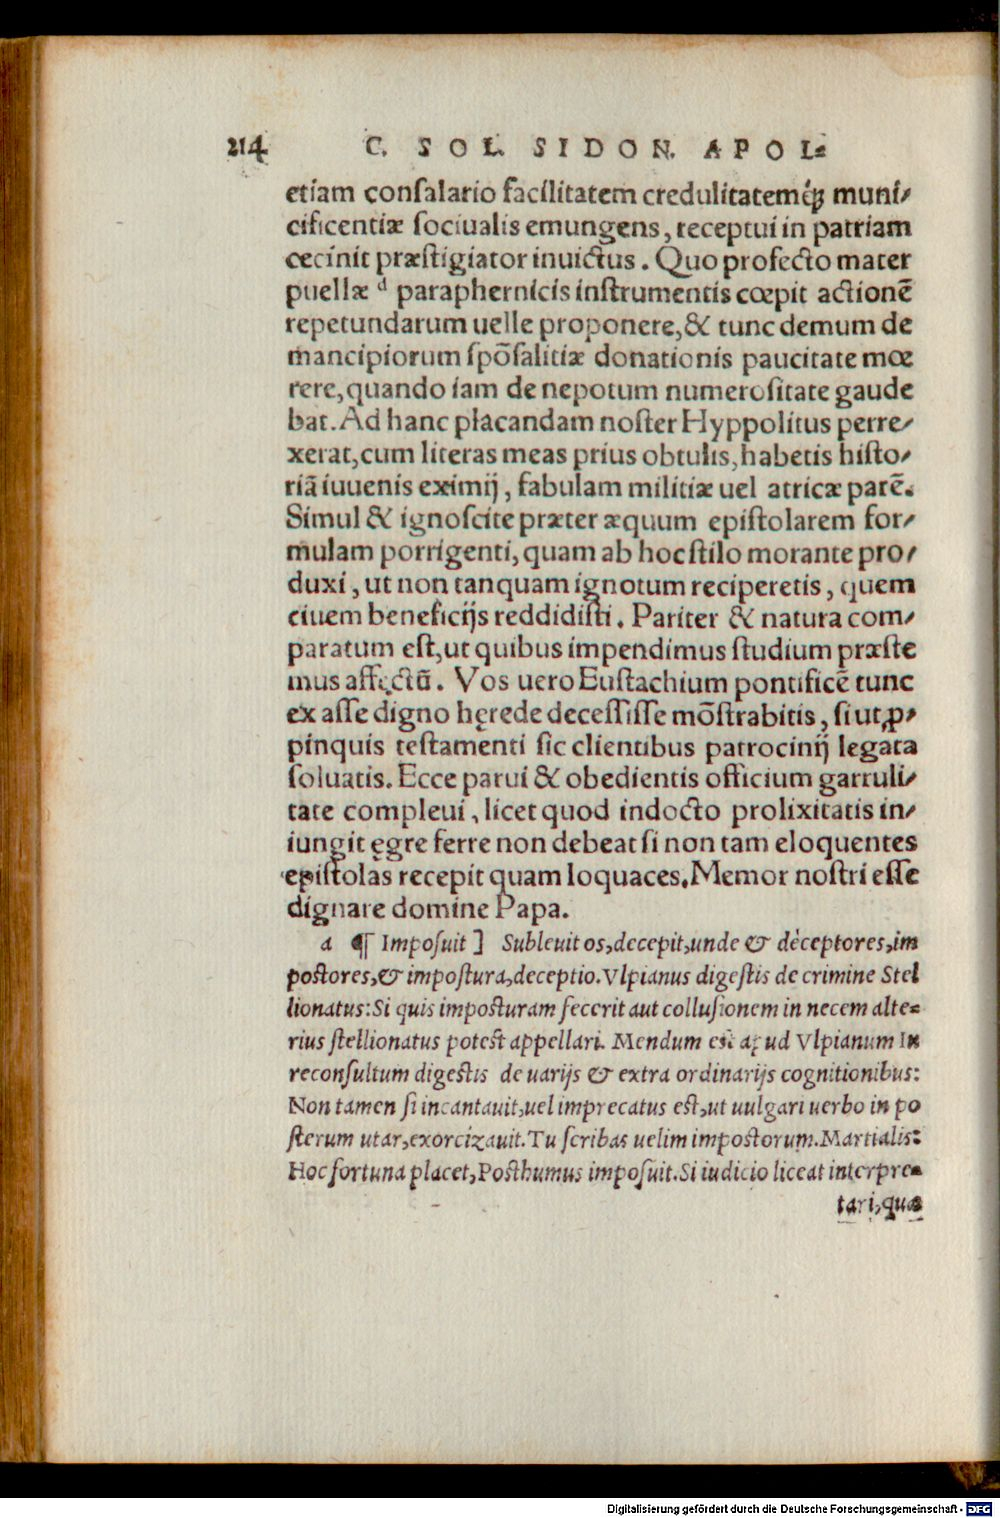 214 C. SOL. SIDON. APOL⸗
etiam consalario facilitatem credulitatemq́ꝫ muni⸗
cificentiæ sociualis emungens, receptui in patriam
cecinit præstigiator inuictus. Quo profecto mater
puellæ ᵈ paraphernicis instrumentis cœpit actionē
repetundarum uelle proponere, & tunc demum de
mancipiorum spōsalitiæ donationis paucitate mœ
rere, quando iam de nepotum numerositate gaude
bat. Ad hanc placandam noster Hyppolitus perre⸗
xerat, cum literas meas prius obtulis, habetis histo⸗
riā iuuenis eximij, fabulam militiæ uel atricæ parē.
Simul & ignoscite præter æquum epistolarem for⸗
mulam porrigenti, quam ab hoc stilo morante pro⸗
duxi, ut non tanquam ignotum reciperetis, quem
ciuem beneficijs reddidisti. Pariter & natura com⸗
paratum est, ut quibus impendimus studium præste
mus affectū. Vos uero Eustachium pontificē tunc
ex asse digno hęrede decessisse mōstrabitis, si ut ꝓ⸗
pinquis testamenti sic clientibus patrocinij legata
soluatis. Ecce parui & obedientis officium garruli⸗
tate compleui, licet quod indocto prolixitatis in⸗
iungit ęgre ferre non debeat si non tam eloquentes
epistolas recepit quam loquaces. Memor nostri esse
dignare domine Papa.
a ¶ Imposuit ] Subleuit os, decepit, unde & deceptores, im
postores, & impostura, deceptio. Vlpianus digestis de crimine Stel
lionatus: Si quis imposturam fecerit aut collusionem in necem alte⸗
rius stellionatus potest appellari. Mendum est apud Vlpianum In
reconsultum digestis de uarijs & extra ordinarijs cognitionibus:
Non tamen si incantauit, uel imprecatus est, ut uulgari uerbo in po
sterum utar, exorcizauit. Tu scribas uelim impostorum. Martialis:
Hoc fortuna placet, Posthumus imposuit. Si iudicio liceat interpre⸗
tari, quæ
Digitalisierung gefördert durch die Deutsche Forschungsgemeinschaft - DFG